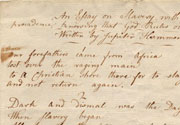 An Essay on Slavery with
providence
Written by Jupiter Hammon
Our forefathers came from africa
tost over the raging main
to a Christian shore there for to stay
and not return again.
2
Dark and dismal was the Day
When slavery began